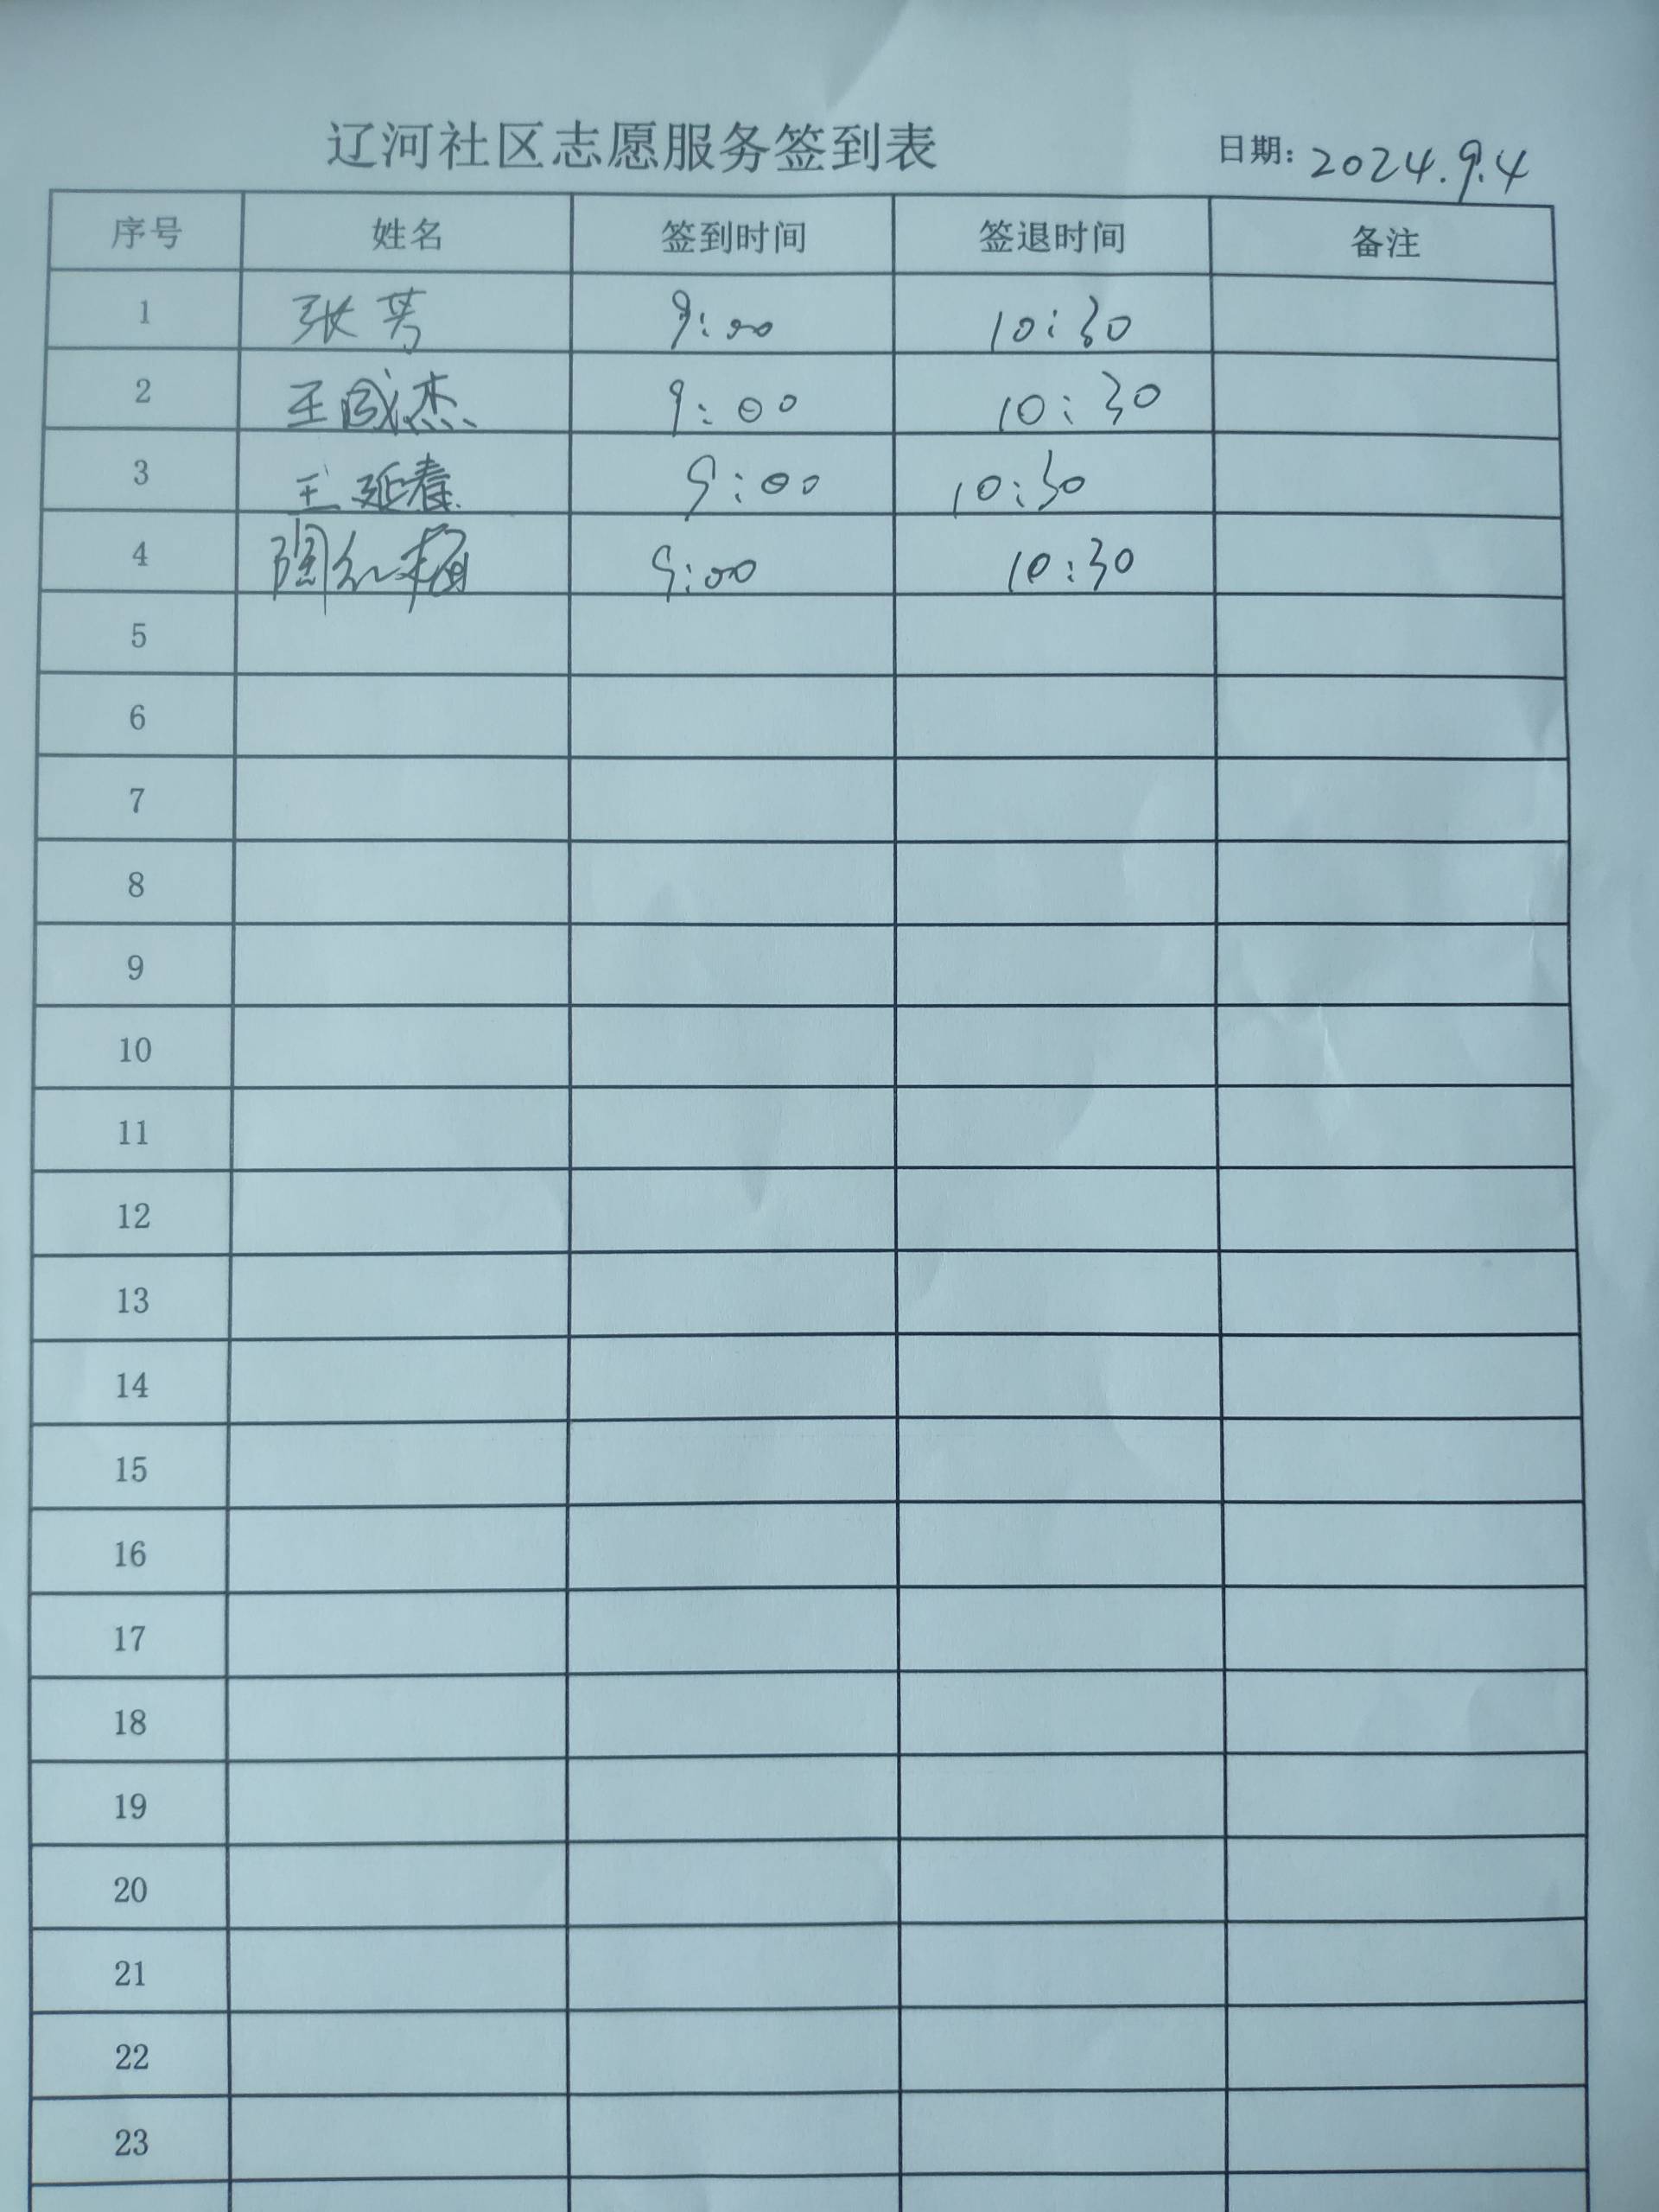 辽河社区志愿服务签到表 日期: 2024.9.4
序号 姓名 签到时间 签退时间 备注
1 张芳 9:00 10:30
2 王国杰 9:00 10:30
3 王延春 9:00 10:30
4 陶红梅 9:00 10:30
5
6
7
8
9
10
11
12
13
14
15
16
17
18
19
20
21
22
23